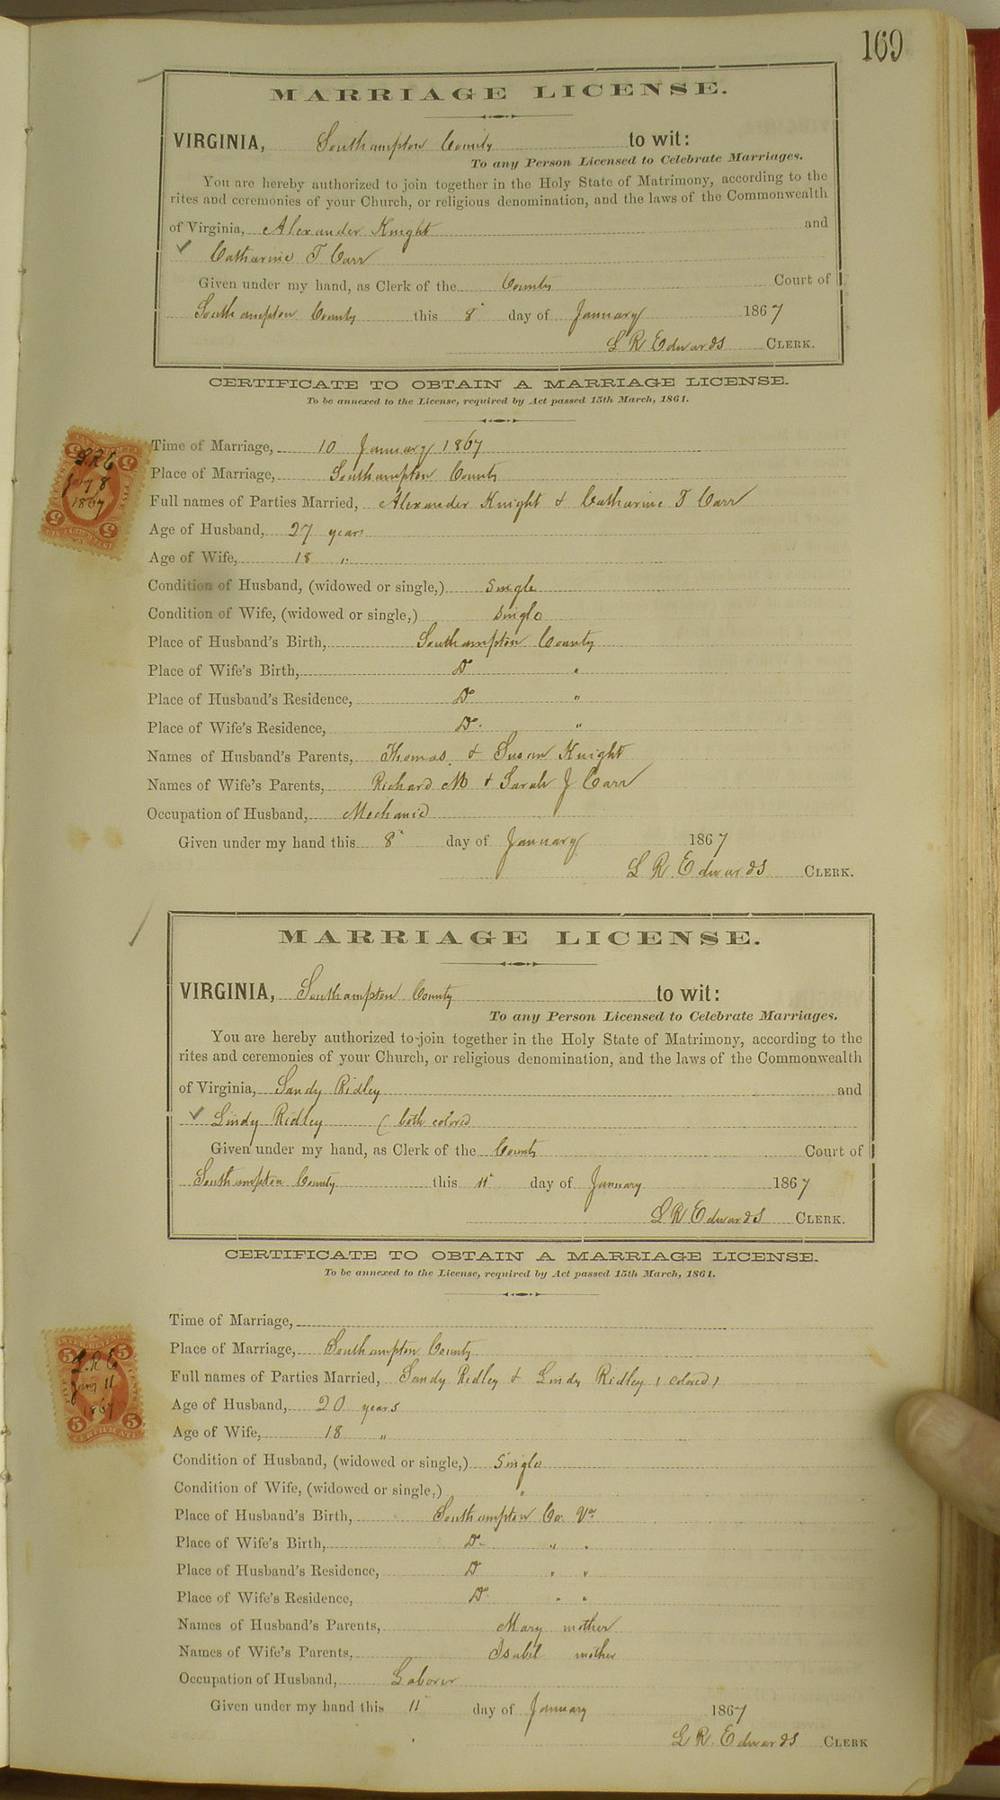 169
MARRIAGE LICENSE.
VIRGINIA, Southampton County to wit:
To any Person Licensed to Celebrate Marriages.
You are hereby authorized to join together in the Holy State of Matrimony, according to the
rites and ceremonies of your Church, or religious denomination, and the laws of the Commonwealth
of Virginia, Alexander Knight and
✓ Catharine T Carr
Given under my hand, as Clerk of the County Court of
Southampton County this 8" day of January 1867
L R Edwards CLERK.
CERTIFICATE TO OBTAIN A MARRIAGE LICENSE.
To be annexed to the License, required by Act passed 15th March, 1861.
Time of Marriage, 10 January 1867
Place of Marriage, Southampton County
Full names of Parties Married, Alexander Knight & Catharine T Carr
Age of Husband, 27 years
Age of Wife, 18 "
Condition of Husband, (widowed or single,) Single
Condition of Wife, (widowed or single,) Single
Place of Husband's Birth, Southampton County
Place of Wife's Birth, Do "
Place of Husband's Residence, Do "
Place of Wife's Residence, Do "
Names of Husband's Parents, Thomas & Susan Knight
Names of Wife's Parents, Richard M & Sarah J Carr
Occupation of Husband, Mechanic
Given under my hand this 8" day of January 1867
L R Edwards CLERK.
L R E
Jany 8
1867
MARRIAGE LICENSE.
VIRGINIA, Southampton County to wit:
To any Person Licensed to Celebrate Marriages.
You are hereby authorized to join together in the Holy State of Matrimony, according to the
rites and ceremonies of your Church, or religious denomination, and the laws of the Commonwealth
of Virginia, Sandy Ridley and
✓ Lindy Ridley (both colored
Given under my hand, as Clerk of the County Court of
Southampton County this 11" day of January 1867
L R Edwards CLERK.
CERTIFICATE TO OBTAIN A MARRIAGE LICENSE.
To be annexed to the License, required by Act passed 15th March, 1861.
Time of Marriage,
Place of Marriage, Southampton County
Full names of Parties Married, Sandy Ridley & Lindy Ridley (colored)
Age of Husband, 20 years
Age of Wife, 18 "
Condition of Husband, (widowed or single,) Single
Condition of Wife, (widowed or single,) "
Place of Husband's Birth, Southampton Co. Va
Place of Wife's Birth, Do " "
Place of Husband's Residence, Do " "
Place of Wife's Residence, Do " "
Names of Husband's Parents, Mary mother
Names of Wife's Parents, Isabel mother
Occupation of Husband, Laborer
Given under my hand this 11" day of January 1867
L R Edwards CLERK
5 5
L R E
Jany 11
1867
5 5
CERTIFICATE